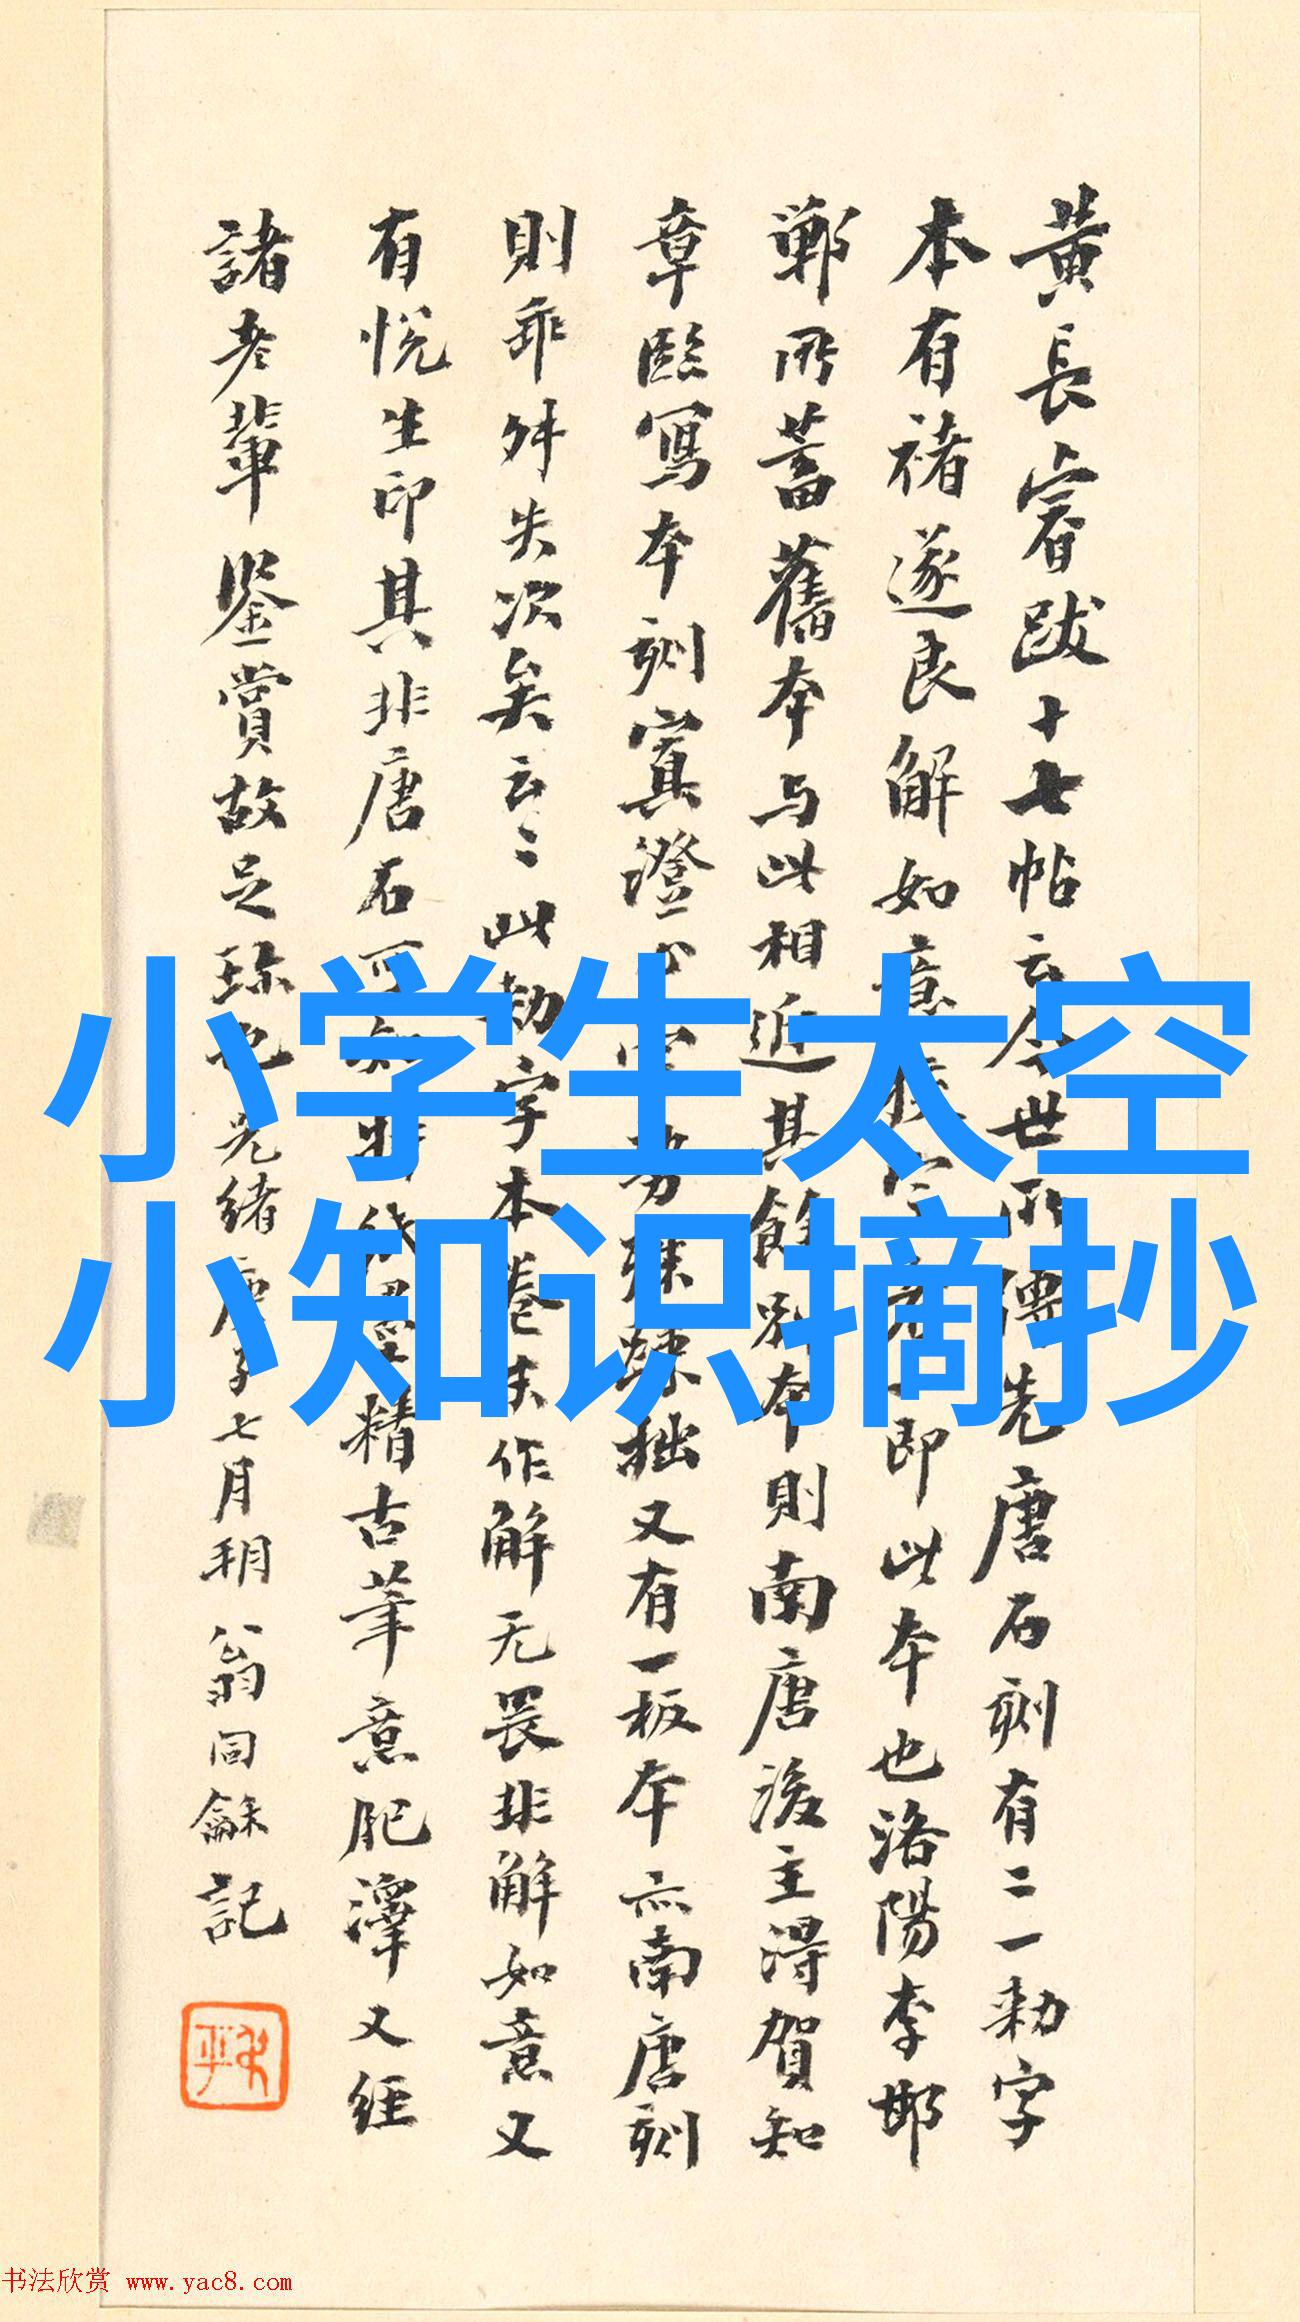 小学生太空
小知识摘抄
黄長睿跋十七帖云今世所傳先唐石刻有二一勅字
本有褚遂良解如意 即此本也洛陽李邯
鄲所蓄舊本与此相近其餘別本則南唐後主得賀知
章臨寫本刻寘澄心堂 又有一板本亦南唐刻
則乖舛失次矣云〻此勅字本卷末作解无畏非解如意又
有悦生印其非唐石可知 精古筆意肥澤又經
諸老輩鑒賞故足珎也光緒庚子七月朔翁同龢記
书法欣赏 www.yac8.com